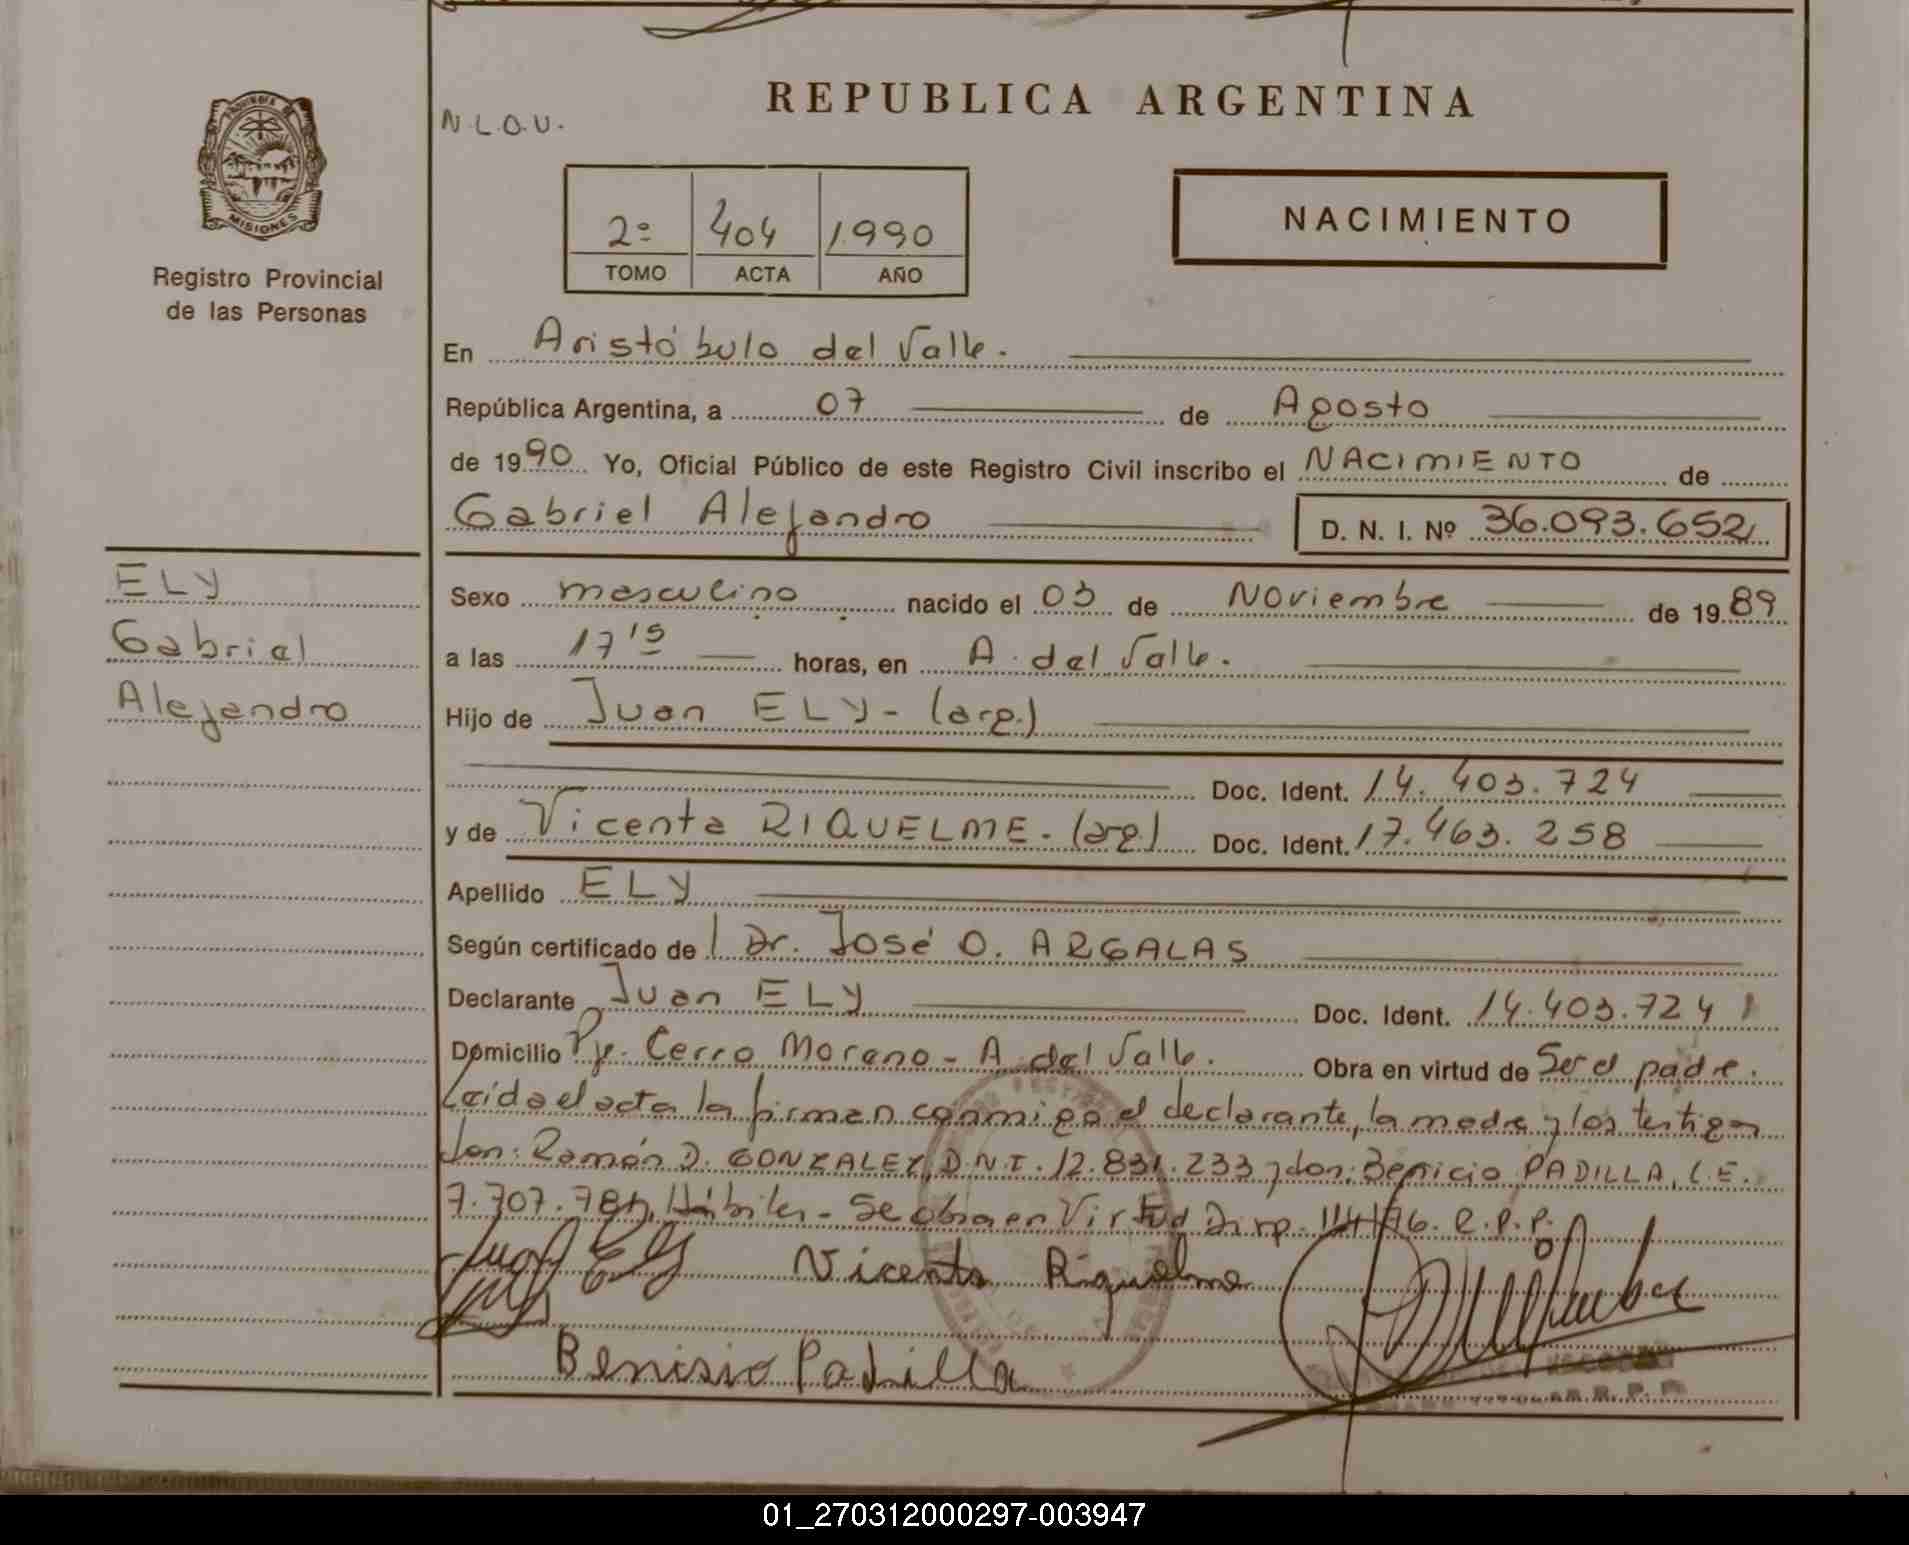 REPUBLICA ARGENTINA
N.L.O.U.
PROVINCIA DE
MISIONES
Registro Provincial
de las Personas
2º 404 1.990
TOMO ACTA AÑO
NACIMIENTO
En Aristóbulo del Valle.
República Argentina, a 07 de Agosto
de 1990 Yo, Oficial Público de este Registro Civil inscribo el NACIMIENTO de
Gabriel Alejandro D. N. I. Nº 36.093.652
ELY
Gabriel
Alejandro
Sexo masculino nacido el 03 de Noviembre de 1989
a las 17 15 horas, en A. del Valle.
Hijo de Juan ELY- (arg.)
Doc. Ident. 14. 403. 724
y de Vicenta RIQUELME. (arg) Doc. Ident. 17.463. 258
Apellido ELY
Según certificado de Dr. José O. ARGALAS
Declarante Juan ELY Doc. Ident. 14.403.724
Domicilio Pje. Cerro Moreno - A. del Valle. Obra en virtud de Ser el padre.
Leída el acta la firman conmigo el declarante, la madre y los testigos
don: Ramón D. GONZALEZ, D.N.I. 12.831.233 y don: Benicio PADILLA, L.E.
7.707. Hábiles - Se obra en Virtud Disp. 114/ R.P.P.
Juan Ely Vicenta Riquelme
Benisio Padilla
R. P. P.
01_270312000297-003947